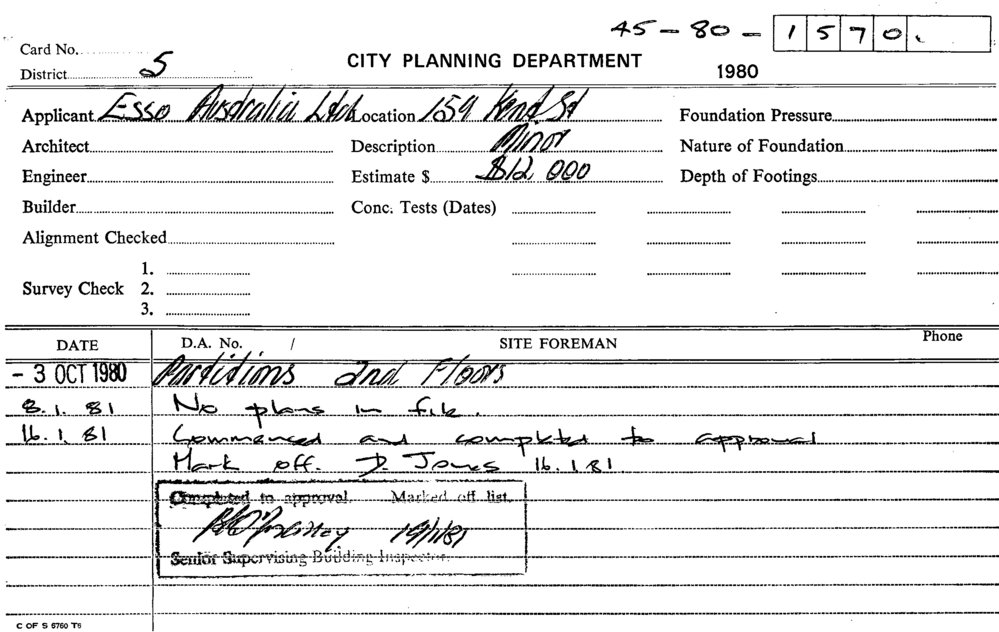 45-80-1570.
Card No.
District 5
CITY PLANNING DEPARTMENT
1980
Applicant Esso Australia Ltd Location 159 Kent St Foundation Pressure
Architect Description Minor Nature of Foundation
Engineer Estimate $ $12,000 Depth of Footings
Builder Conc. Tests (Dates)
Alignment Checked
1.
Survey Check 2.
3.
DATE D.A. No. / SITE FOREMAN Phone
- 3 OCT 1980 Partitions and Floors
8.1.81 No plans in file.
16.1.81 Commenced and completed to approval
Mark off. D. Jones 16.1.81
Completed to approval. Marked off list.
19/1/81
Senior Supervising Building Inspector.
C OF S 6760 T6